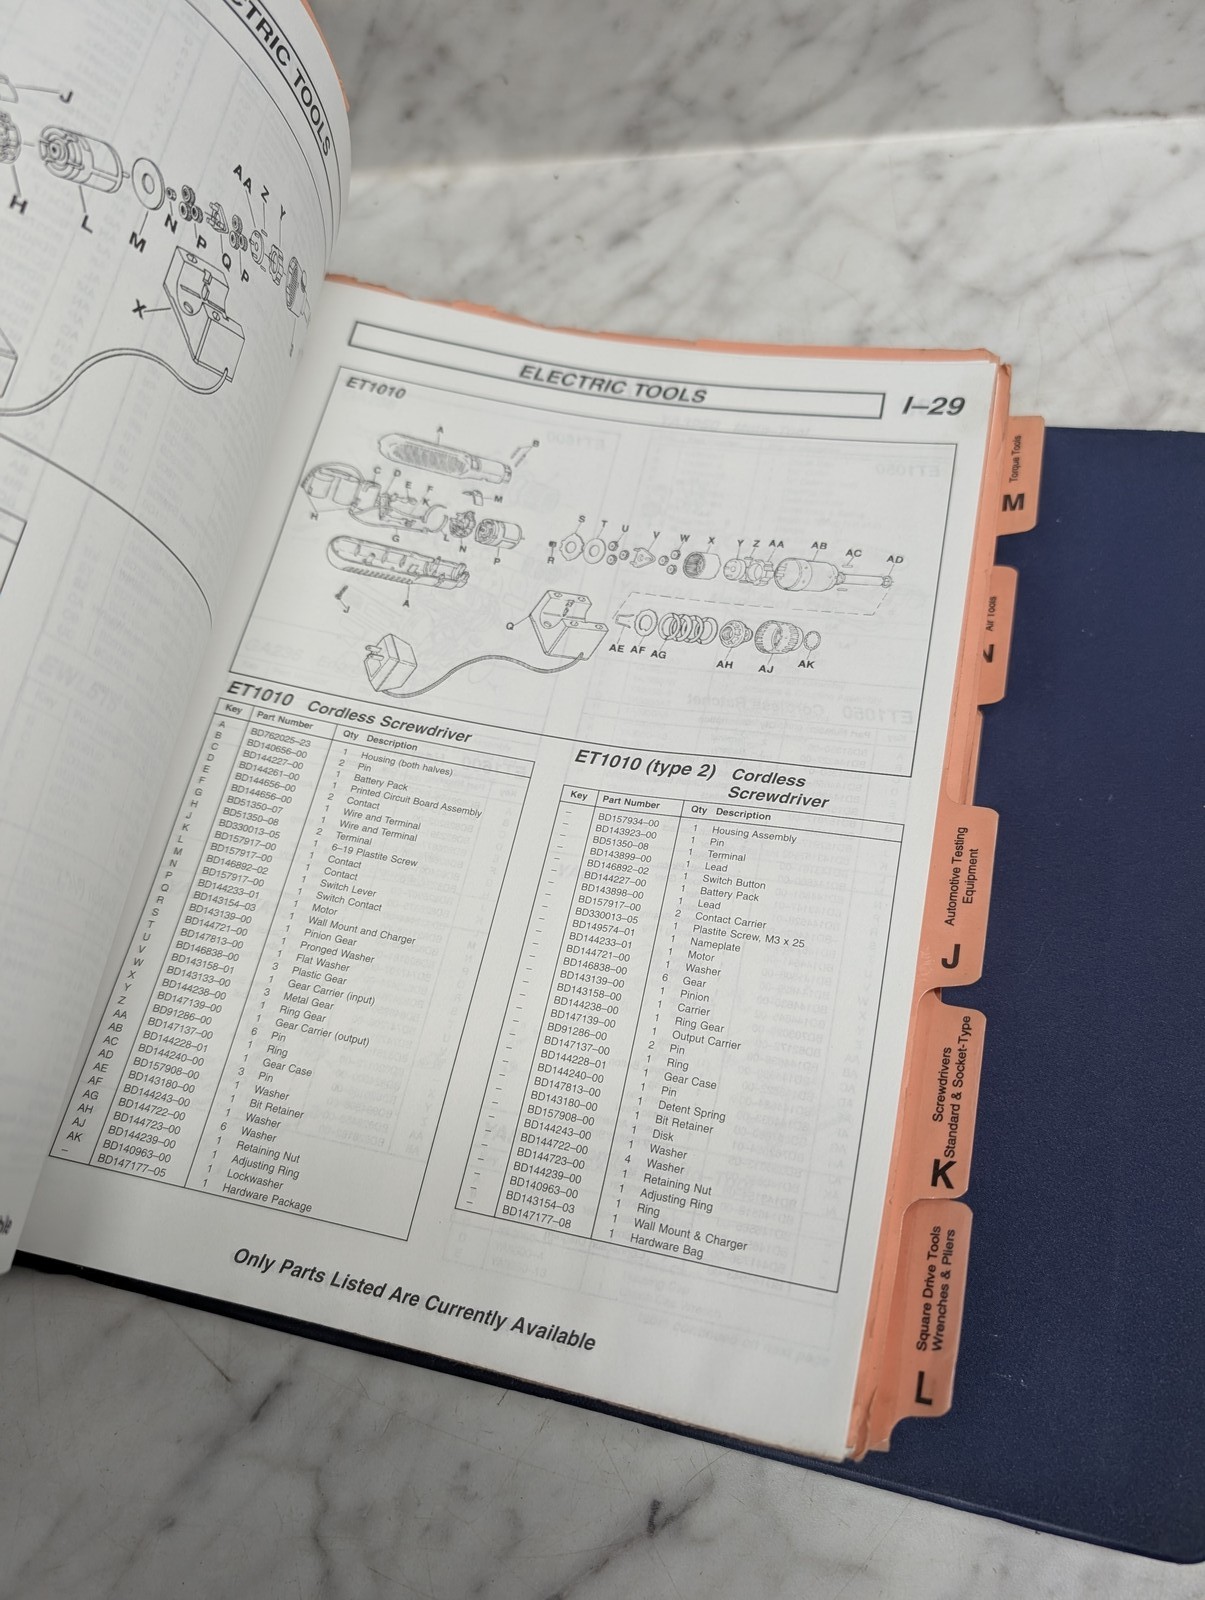 CTRIC TOOLS
J
H
L
M
N
P
Q
P
AA
Z
Y
X
ELECTRIC TOOLS
I–29
ET1010
A
B
C
D
E
F
K
M
H
G
L
N
P
A
J
S
T
U
V
W
X
Y
Z
AA
AB
AC
AD
R
Q
AE
AF
AG
AH
AJ
AK
ET1010 Cordless Screwdriver
Key Part Number Qty Description
A BD762025–23 1 Housing (both halves)
B BD140656–00 2 Pin
C BD144227–00 1 Battery Pack
D BD144261–00 1 Printed Circuit Board Assembly
E BD144656–00 2 Contact
F BD144656–00 1 Wire and Terminal
G BD51350–07 1 Wire and Terminal
H BD51350–08 2 Terminal
J BD330013–05 1 6–19 Plastite Screw
K BD157917–00 1 Contact
L BD157917–00 1 Contact
M BD146892–02 1 Switch Lever
N BD157917–00 1 Switch Contact
P BD144233–01 1 Motor
Q BD143154–03 1 Wall Mount and Charger
R BD143139–00 1 Pinion Gear
S BD144721–00 1 Pronged Washer
T BD147813–00 1 Flat Washer
U BD146838–00 3 Plastic Gear
V BD143158–01 1 Gear Carrier (input)
W BD143133–00 3 Metal Gear
X BD144238–00 1 Ring Gear
Y BD147139–00 1 Gear Carrier (output)
Z BD91286–00 6 Pin
AA BD147137–00 1 Ring
AB BD144228–01 1 Gear Case
AC BD144240–00 3 Pin
AD BD157908–00 1 Washer
AE BD143180–00 1 Bit Retainer
AF BD144243–00 1 Washer
AG BD144722–00 6 Washer
AH BD144723–00 1 Retaining Nut
AJ BD144239–00 1 Adjusting Ring
AK BD140963–00 1 Lockwasher
– BD147177–05 1 Hardware Package
ET1010 (type 2) Cordless
Screwdriver
Key Part Number Qty Description
– BD157934–00 1 Housing Assembly
– BD143923–00 1 Pin
– BD51350–08 1 Terminal
– BD143899–00 1 Lead
– BD146892–02 1 Switch Button
– BD144227–00 1 Battery Pack
– BD143898–00 1 Lead
– BD157917–00 2 Contact Carrier
– BD330013–05 1 Plastite Screw, M3 x 25
– BD149574–01 1 Nameplate
– BD144233–01 1 Motor
– BD144721–00 1 Washer
– BD146838–00 6 Gear
– BD143139–00 1 Pinion
– BD143158–00 1 Carrier
– BD144238–00 1 Ring Gear
– BD147139–00 1 Output Carrier
– BD91286–00 2 Pin
– BD147137–00 1 Ring
– BD144228–01 1 Gear Case
– BD144240–00 1 Pin
– BD147813–00 1 Detent Spring
– BD143180–00 1 Bit Retainer
– BD157908–00 1 Disk
– BD144243–00 1 Washer
– BD144722–00 4 Washer
– BD144723–00 1 Retaining Nut
– BD144239–00 1 Adjusting Ring
– BD140963–00 1 Ring
– BD143154–03 1 Wall Mount & Charger
– BD147177–08 1 Hardware Bag
Only Parts Listed Are Currently Available
M Torque Tools
Air Tools
J Automotive Testing
Equipment
K Screwdrivers
Standard & Socket-Type
L Square Drive Tools
Wrenches & Pliers